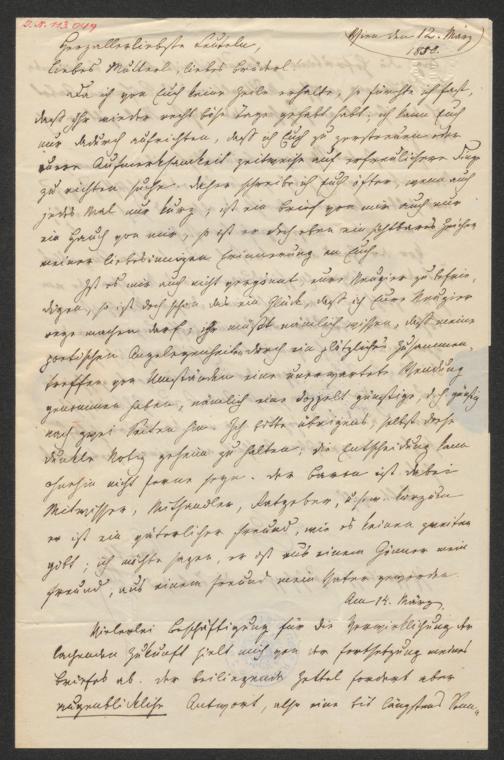 I.N. 113.049
Wien den 12. März
1882.
Herzallerliebste Leuteln,
liebes Mutterl, liebes Bruderl
Da ich von Euch keine Zeile erhalte, so fürchte ich fast,
daß Ihr wieder recht böse Tage gehabt habt; ich kann Euch
nur dadurch aufrichten, daß ich Euch zu zerstreuen oder
eure Aufmerksamkeit zeitweise auf erfreulichere Dinge
zu richten suche. Daher schreibe ich Euch öfter, wenn auch
jedes Mal nur kurz; ist ein Brief von mir auch nur
ein Hauch von mir, so ist er doch eben ein sichtbares Zeichen
meiner liebesinnigen Erinnerung an Euch.
Ist es mir auch nicht vergönnt eure Neugier zu befrie-
digen, so ist doch schon das ein Glück, daß ich Eure Neugier
rege machen darf; ihr müßt nämlich wissen, daß meine
poetischen Angelegenheiten durch ein plötzliches Zusammen-
treffen von Umständen eine unerwartete Wendung
genommen haben, nämlich eine doppelt günstige, d.h. günstig
nach zwei Seiten hin. Ich bitte übrigens, selbst diese
dunkle Notiz geheim zu halten; die Entscheidung kann
ohnehin nicht ferne seyn. Der Baron ist dabei
Mitwisser, Mithandler, Ratgeber, u.s.w. kurzum
er ist ein väterlicher Freund, wie es keinen zweiten
gibt; ich möchte sagen, er ist aus einem Gönner mein
Freund, aus einem Freund mein Vater geworden.
Am 14. März.
Vielerlei Beschäftigung für die Verwirklichung der
lachenden Zukunft hielt mich von der Fortsetzung meines
Briefes ab. Der beiliegende Zettel fordert aber
augenblickliche Antwort, also eine bis längstens Sonn-